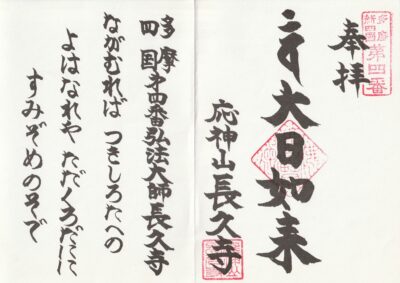 奉拝
第四番
大日如来
応神山長久寺
多摩四国才四番弘法大師長久寺
ながむれば つきしろたへの
よはなれや ただくろだにに
すみぞめのそで